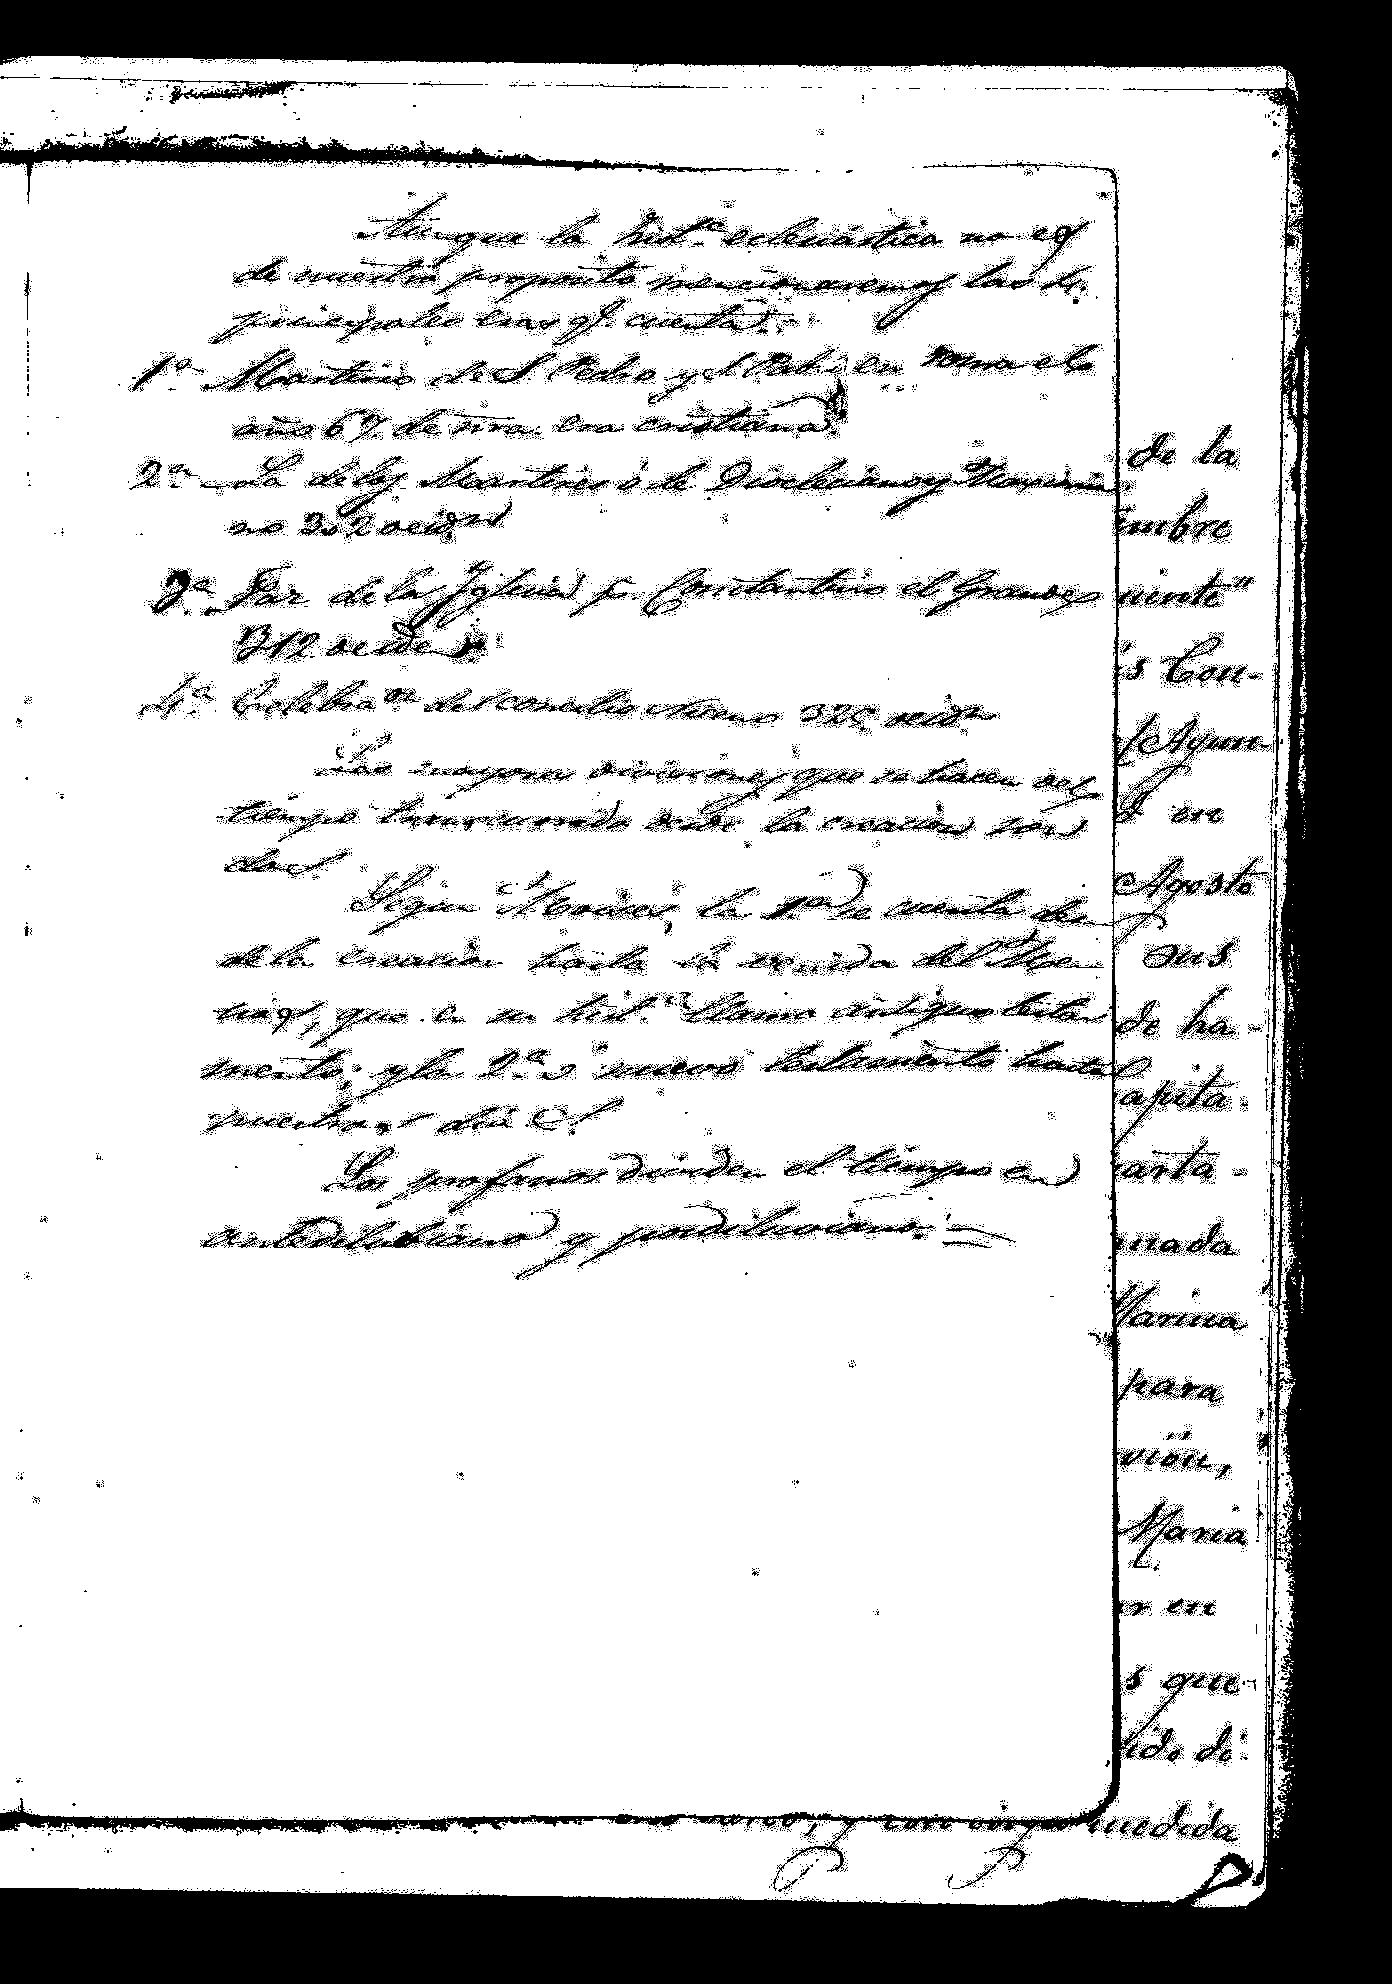 Aunque la hist.ª eclesiástica no es
de nuestro proposito mencionaremos las 4
principales eras q.e cuenta:
1.ª Martirio de S. Pedro y S. Pablo en Roma el
año 67 de nra. era cristiana.
2.ª La de los Martires ó de Diocleciano y Maximia
no 302 de id.
3.ª Paz de la Iglesia p.r Constantino el Grande
312 de id.
4.ª Celebra.on del concilio Niceno 325 de id.
Las mayores divisiones que se hacen del
tiempo transcurrido desde la creacion son
dos.
Segun Moises, la 1.ª se cuenta des
de la creacion hasta la venida del Me
sias, que en su hist.ª llama antiguo testa
mento; y la 2.ª ó nuevo testamento hasta
nuestros dias
Los profanos dividen el tiempo en
antediluviano y postdiluviano.=
de la
embre
uiente"
is Con-
l Ayun-
en
Agosto
sus
de ha-
apita-
arta-
nada
Marina
para
vión,
Maria
ar en
s que
ido di-
y con cinya medida